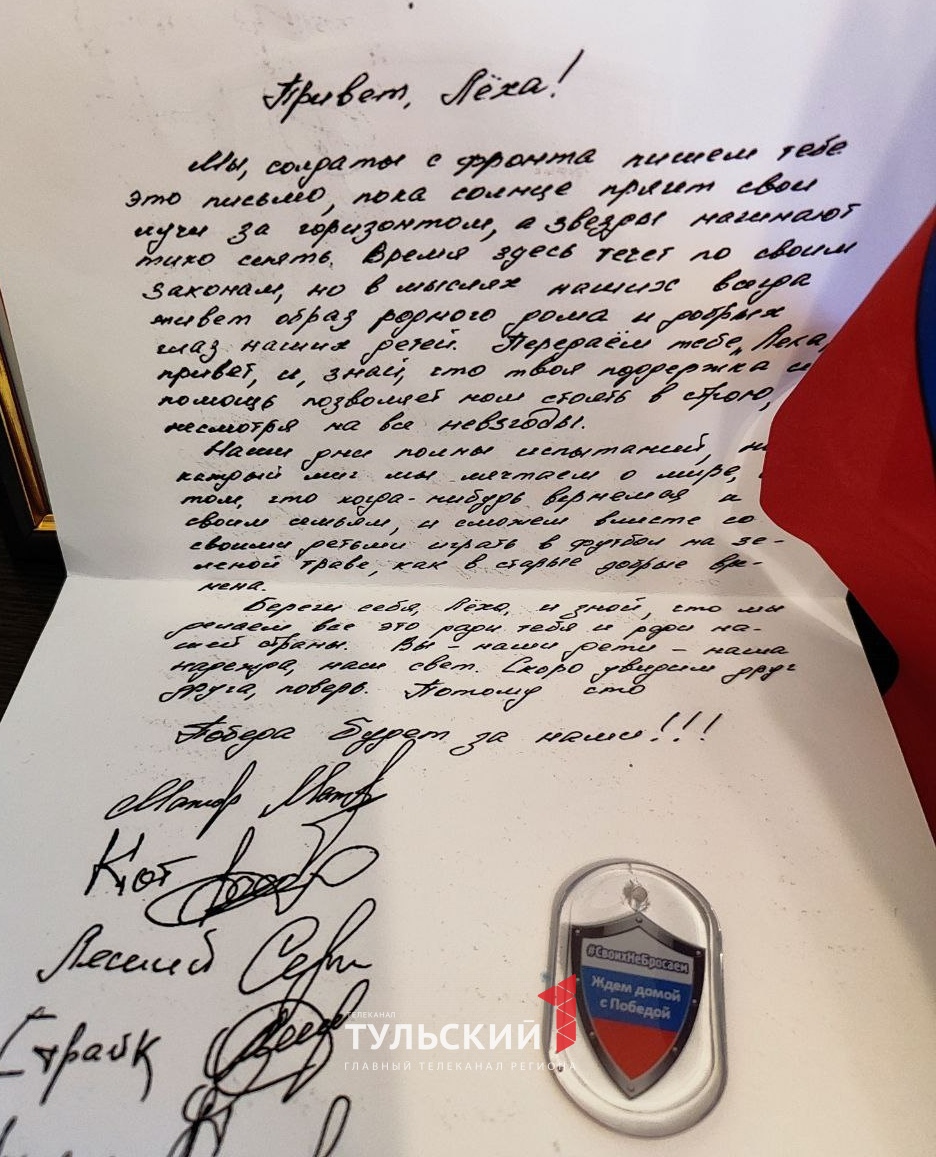 Привет, Лёха!
Мы, солдаты с фронта пишем тебе
это письмо, пока солнце прячит свои
лучи за горизонтом, а звезды начинают
тихо сиять. Время здесь течет по своим
законам, но в мыслях наших всегда
живет образ родного дома и добрых
глаз наших детей. Передаём тебе, Лёха,
привет, и, знай, что твоя поддержка и
помощь позволяет нам стоять в строю,
несмотря на все невзгоды.
Наши дни полны испытаний, но
каждый миг мы мечтаем о мире, о
том, что когда-нибудь вернемся к
своим семьям, и сможем вместе со
своими детьми играть в футбол на зе-
леной траве, как в старые добрые вре-
мена.
Береги себя, Лёха, и знай, что мы
делаем все это ради тебя и ради на-
шей страны. Вы - наши дети - наша
надежда, наш свет. Скоро увидим друг
друга, поверь. Потому что
Победа будет за нами!!!
Кот
Леший
Страйк
#СвоихНеБросаем
Ждем домой
с Победой
ТЕЛЕКАНАЛ
ТУЛЬСКИЙ 1
ГЛАВНЫЙ ТЕЛЕКАНАЛ РЕГИОНА